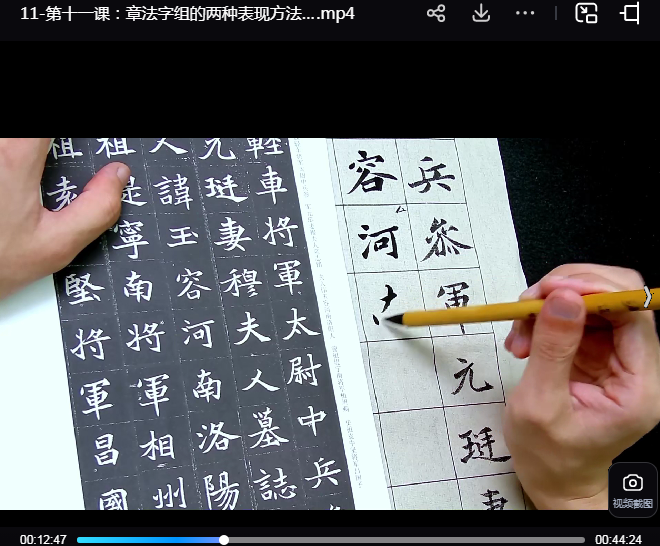 11-第十一课：章法字组的两种表现方法....mp4
兵參軍元珽妻
容河
輕車將軍太尉中兵
元珽妻穆夫人墓誌
人諱玉容河南洛陽
祖寧南將軍相州
祖袁堅將軍昌國
视频截图
00:12:47
00:44:24